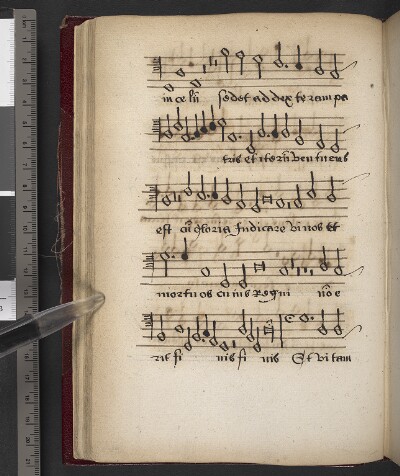 in celū sedet ad dexteram pa
tris et iterū venturus
est cū gloria Iudicare vivos Et
mortuos cuius Regni nō e
rit fi nis fi nis Et vitam